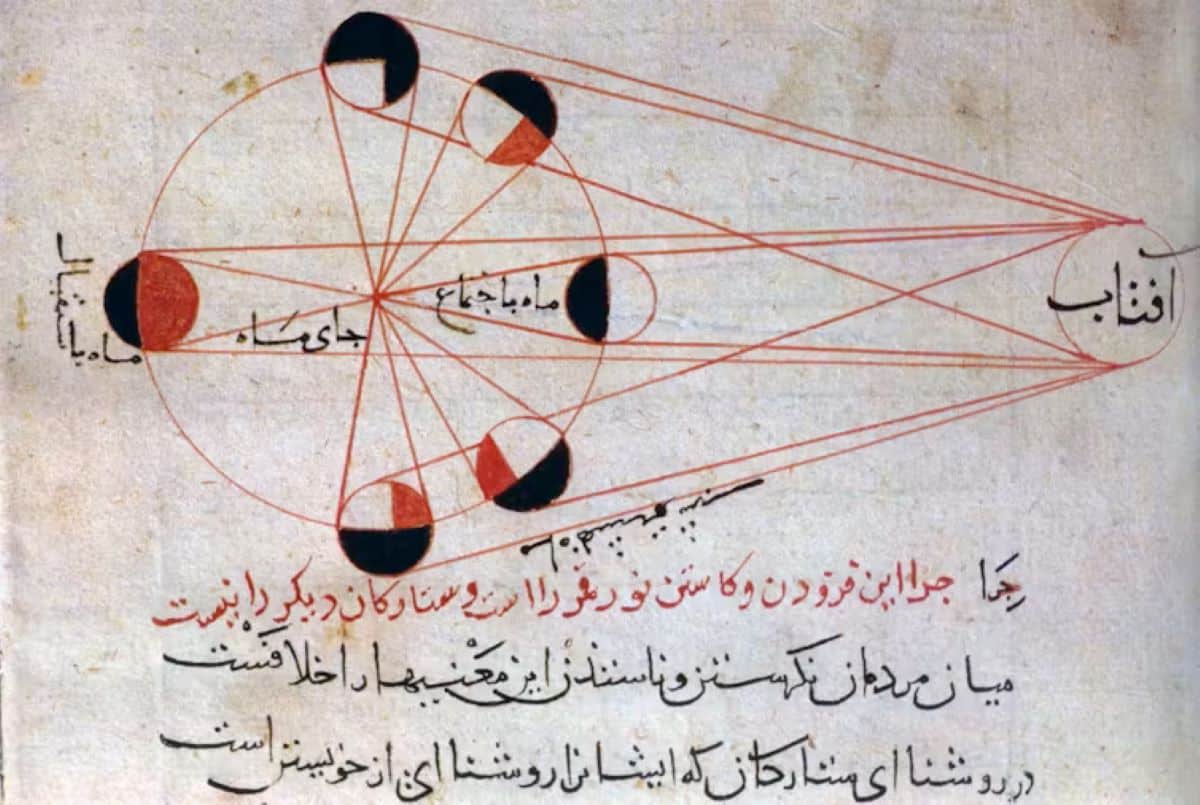 افتاب
ماه باجتماع
جای مَاه
ماه باستقبال
جرا جرا این فزودن و کاستن نور قمر را است و ستارکان دیکر را نیست
میان مردمان نکرستن این مَعْنیها را خلافست
در روشنا ای ستارکان که ایشانرا روشنا ای از خویستن است